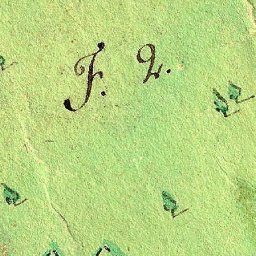 F. 2.